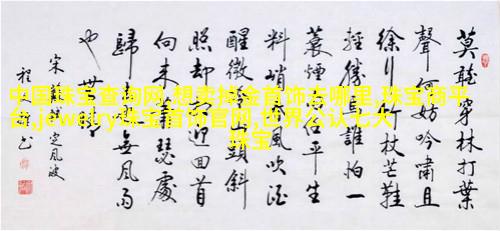 莫聽穿林打葉
聲何妨吟嘯且
徐行竹杖芒鞋
輕勝馬誰怕一
蓑煙雨任平生
料峭春風吹酒
醒微冷山頭斜
照却相迎回首
向来蕭瑟處
歸去也無風雨
也無晴
宋蘇軾定風波
中国珠宝查询网,想卖掉金首饰去哪里,珠宝商平
台,jewelry珠宝首饰官网,世界公认七大
珠宝